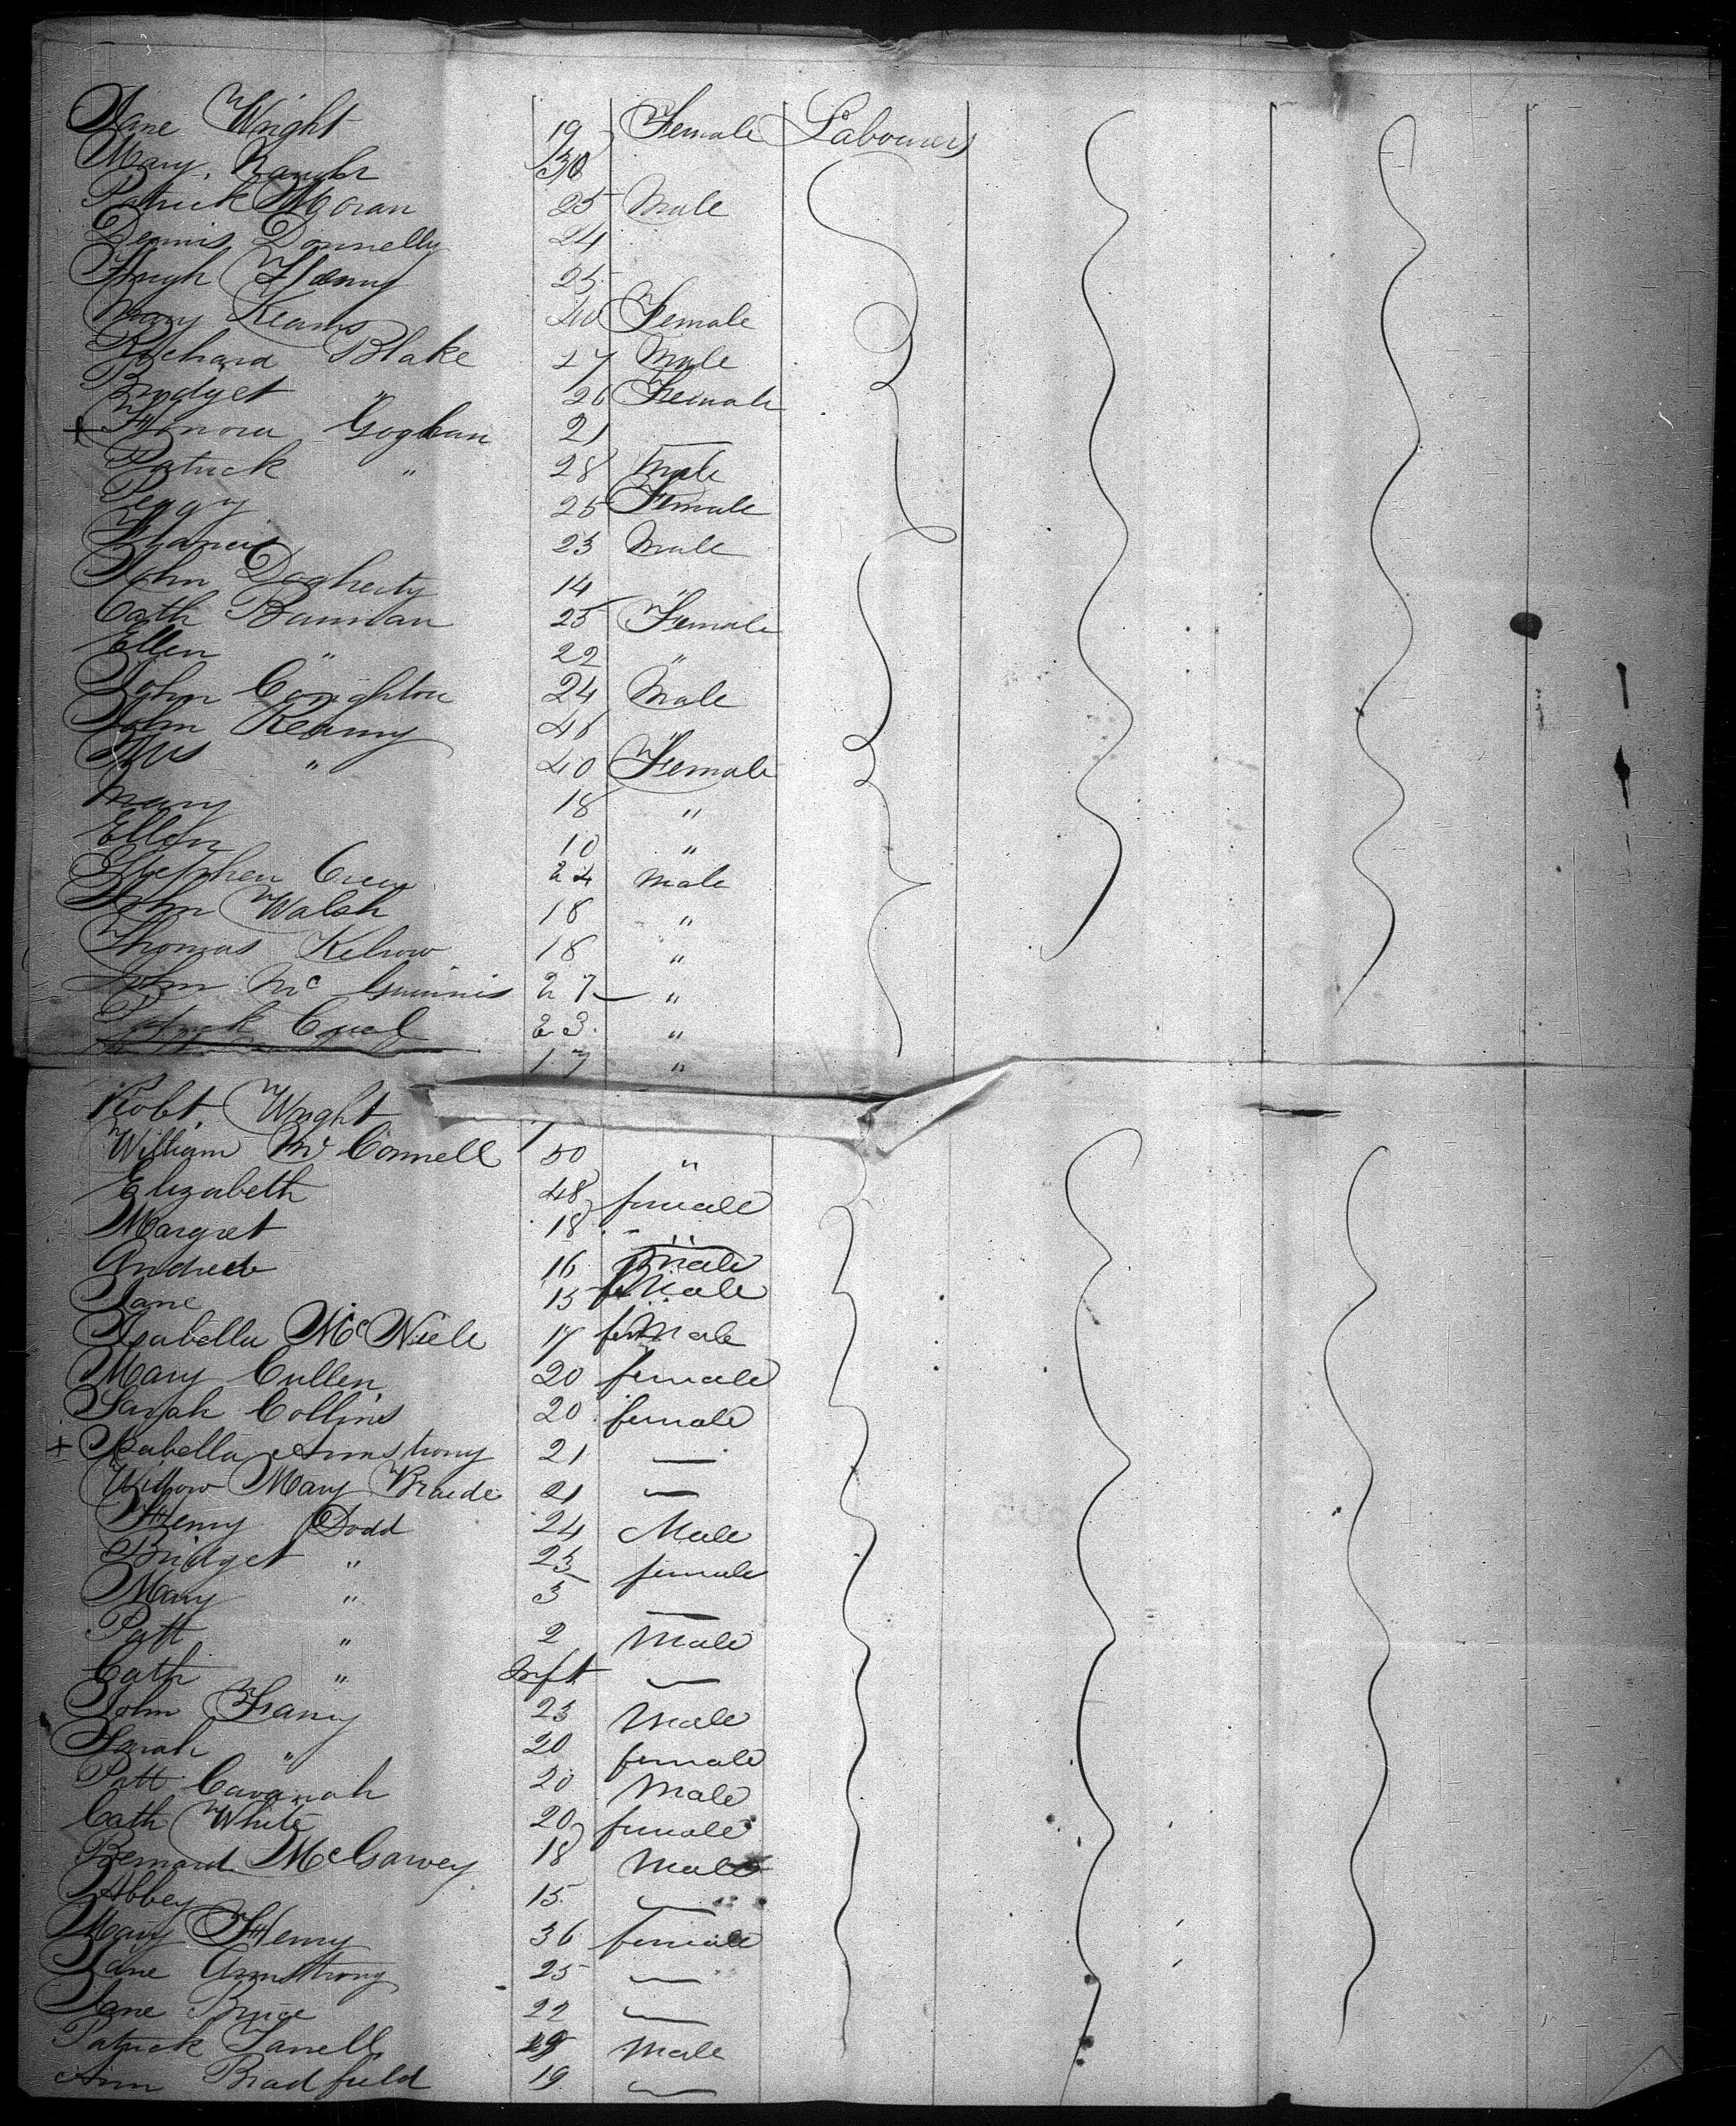 Jane Wright 19 Female Labourers
Mary 30
Patrick Moran 25 Male
Dennis Donnelly 24
Hugh 25
Mary Kearns 40 Female
Richard Blake 27 Male
Bridget " 26 Female
+ Honora Goghan 21 —
Patrick " 28 Male
Peggy 25 Female
Francis 23 Male
John Dogherty 14 "
Cath Bannan 25 Female
Ellen " 22 "
John Coughton 24 Male
John Reamy 46 "
Mrs " 40 Female
Mary 18 "
Ellen 10 "
Stephen 24 Male
John Walsh 18 "
Thomas 18 "
John Mc Guinnis 27 "
Patrick 23 "
17 "
Robt. Wright
William Mc Connell 50 "
Elizabeth 48 female
Margret 18 "
Andrew 16 Male
Jane 15 feMale
Isabella McNiele 17 feMale
Mary Cullen 20 female
Sarah Collins 20 female
+ Isabella Armstrong 21 —
Widow Mary 21 —
Henry Dodd 24 Male
Bridget " 23 female
Mary " 3 —
Patt " 2 Male
Cath " Inft —
John 23 Male
Sarah " 20 female
Patt Cavanah 20 Male
Cath White 20 female
Bernard McGarvey 18 Male
Abbey 15 —
Mary Henry 36 female
Jane Armstrong 25 —
Jane Bruce 22 —
Patrick 19 Male
Ann Bradfield 19 —